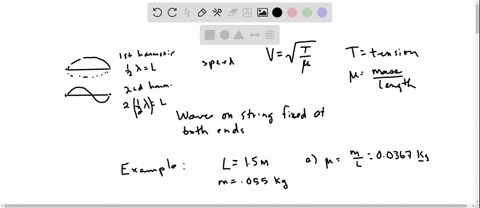 1st harmonic
½ λ = L
2nd harm.
2(½λ) = L
speed
V = √(T/μ)
T = tension
μ = mass/length
Waves on string fixed at
both ends
Example: L = 1.5 m
m = .055 kg
a) μ = m/L = 0.0367 kg